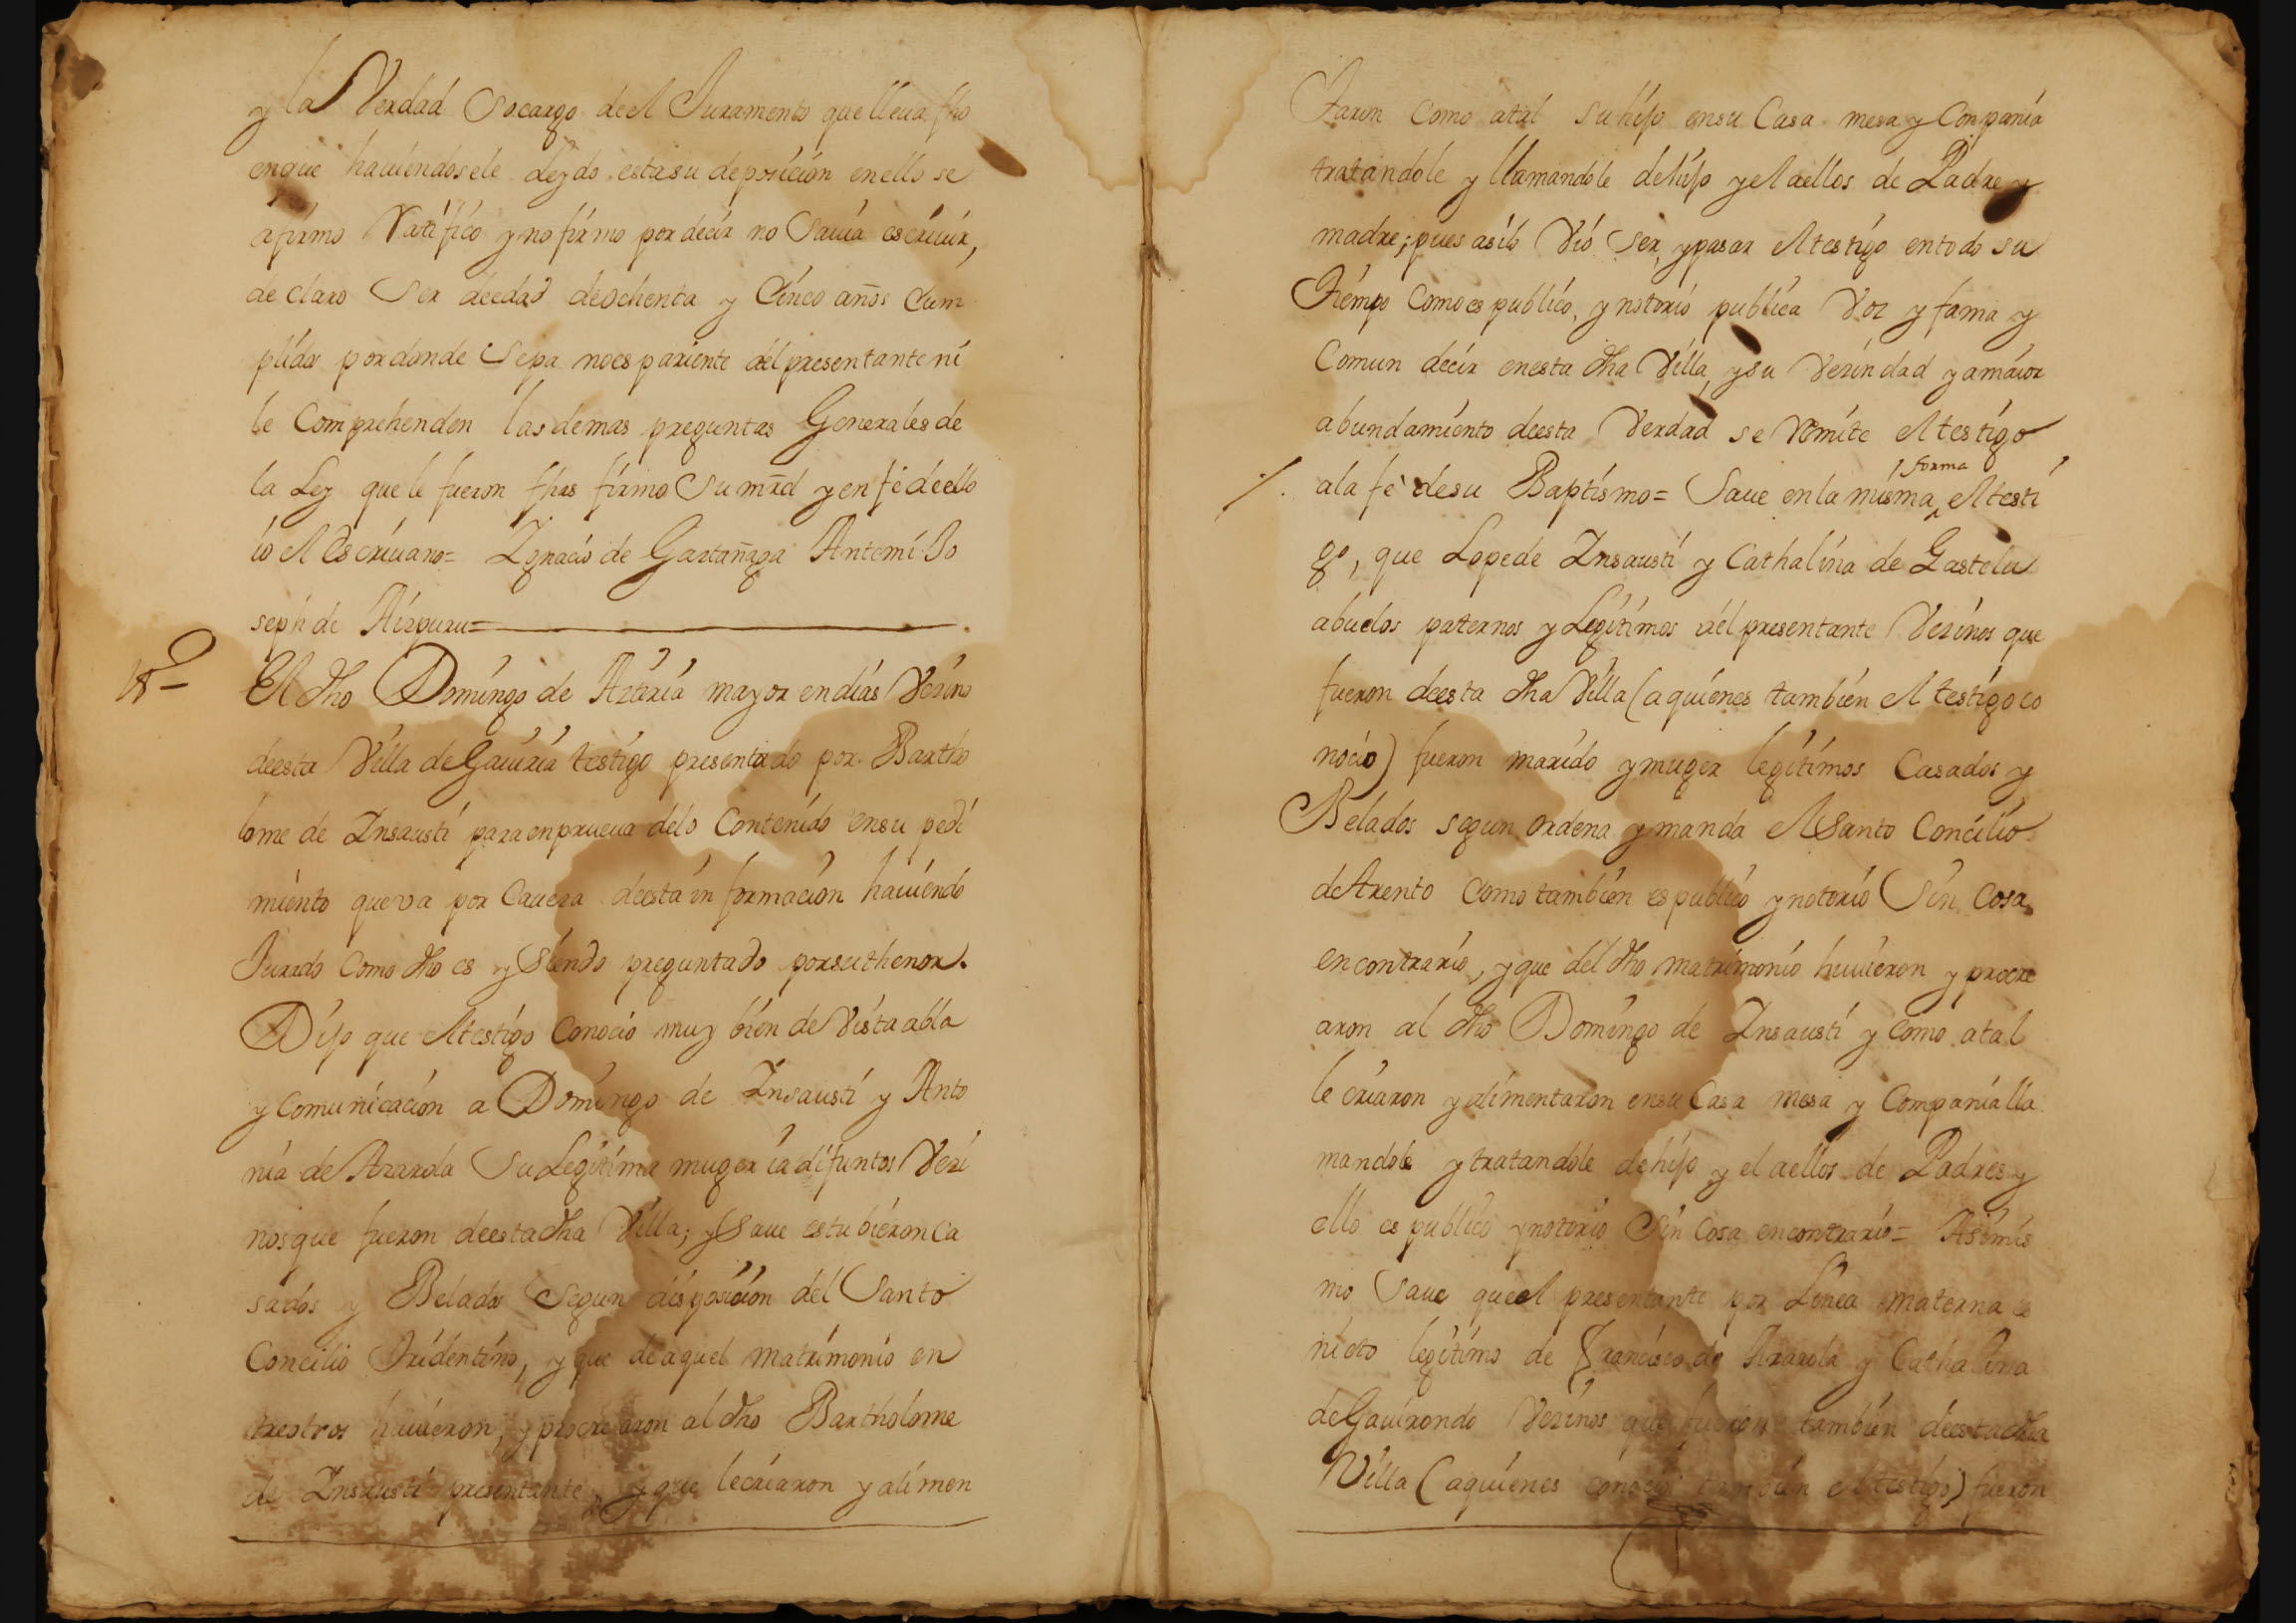 y la Verdad so cargo de el Juramento que lleua fho
en que hauiendosele Leydo esta su deposicion en ello se
afirmo Ratifico y no firmo por decir no Sauia escriuir,
declaro Ser de edad de ochenta y Cinco años Cum
plidos por donde Sepa no es pariente del presentante ni
le Comprehenden las demas preguntas Generales de
la Ley que le fueron fhas firmo Su mrd y en fe de ello
io el Escriuano= Ignacio de Gartañaga Antemi Jo
seph de Aizpuru=
El dho Domingo de Azteria mayor en dias Vezino
de esta Villa de Gauiria testigo presentado por Bartho
lome de Insausti para en prueua de lo Contenido en su pedi
miento que va por Caueza de esta informacion hauiendo
Jurado Como dho es y Siendo preguntado por su thenor.
Dijo que el testigo Conocio muy bien de Vista abla
y Comunicacion a Domingo de Insausti y Anto
nia de Azarola Su Legitima muger ia difuntos Vezi
nos que fueron de esta dha Villa; y Saue estubieron Ca
sados y Belados Segun disposicion del Santo
Concilio Tridentino, y que de aquel matrimonio en
tre otros huuieron, y procrearon al dho Bartholome
de Insausti presentante, y que le criaron y alimen
taron Como atal su hijo en su Casa mesa y Conpania
tratandole y llamandole de hijo y el a ellos de Padre y
madre; pues asi lo Vió Ser, y pasar el testigo en todo su
Tiempo Como es publico, y notorio publica Voz y fama y
Comun decir en esta dha Villa, y su Vezindad y a maior
abundamiento de esta Verdad se Remite el testigo
/. ala fe de su Baptismo= Saue en la misma ^forma el testi
go, que Lope de Insausti y Cathalina de Gastelu
abuelos paternos y Legitimos del presentante Vezinos que
fueron de esta dha Villa (a quienes tambien el testigo co
nocio) fueron marido y muger legitimos Casados y
Belados segun ordena y manda el Santo Concilio
de Trento Como tambien es publico y notorio Sin Cosa
en contrario, y que del dho matrimonio huuieron y procre
aron al dho Domingo de Insausti y Como atal
le criaron y alimentaron en su Casa mesa y Compania lla
mandole y tratandole de hijo y el a ellos de Padres y
ello es publico y notorio Sin Cosa en contrario= Asimis
mo Saue que el presentante por Linea materna es
nieto legitimo de Francisco de Azarola y Cathalina
de Gauirondo Vezinos que fueron tambien de esta dha
Villa (a quienes conocio tambien el testigo) fueron